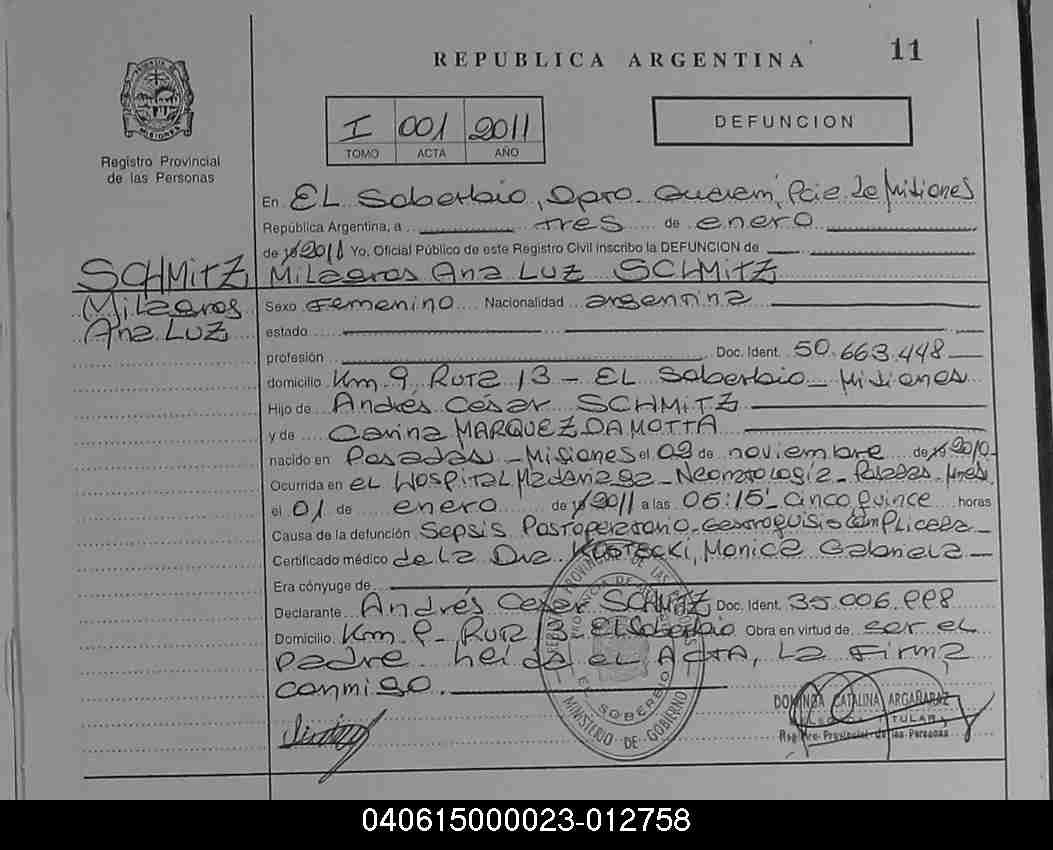 REPUBLICA ARGENTINA
11
PROVINCIA DE MISIONES
Registro Provincial
de las Personas
I 001 2011
TOMO ACTA AÑO
DEFUNCION
En EL Soberbio, Dpto. Guaraní, Pcie. de Misiones
República Argentina, a tres de enero
de 2011 Yo, Oficial Público de este Registro Civil inscribo la DEFUNCION de
SCHMITZ
Milagros
Ana LUZ
Milagros Ana LUZ SCHMITZ
Sexo Femenino Nacionalidad argentina
estado
profesión Doc. Ident. 50.663.448
domicilio Km. 9, Ruta 13 - EL Soberbio - Misiones
Hijo de Andrés César SCHMITZ
y de Carina MARQUEZ DA MOTTA
nacido en Posadas - Misiones el 09 de noviembre de 2010
Ocurrida en el Hospital Madariaga - Neonatología - Posadas - Mnes
el 01 de enero de 2011 a las 05:15 - cinco quince horas
Causa de la defunción Sepsis Postoperatorio - Gastroquisis complicada
Certificado médico de la Dra. KOSTECKI, Monica Gabriela
Era cónyuge de
Declarante Andrés Cesar SCHMITZ Doc. Ident. 35.006.998
Domicilio Km. 9 - Ruta 13 - El Soberbio Obra en virtud de ser el
padre. leída el ACTA, la firma
conmigo.
EL SOBERBIO
MINISTERIO DE GOBIERNO
DOMINGA CATALINA ARGAÑARAZ
TITULAR
Registro Provincial de las Personas
040615000023-012758